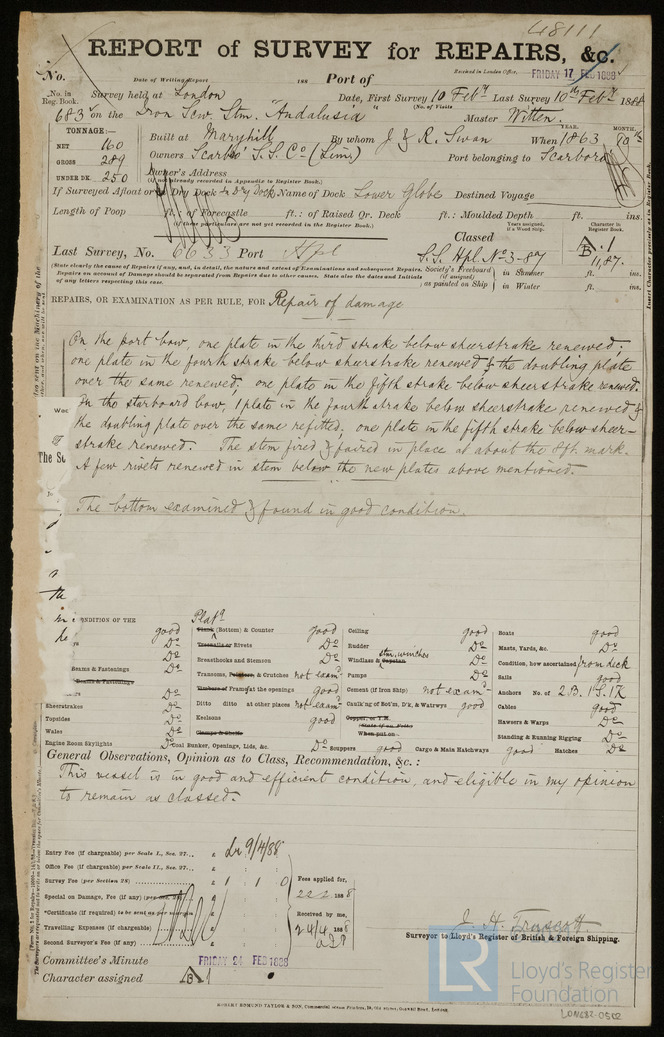 48111
REPORT of SURVEY for REPAIRS, &c.
No.
Date of Writing Report 188 Port of
Received in London Office, FRIDAY 17 FEB 1888
No. in Reg. Book. Survey held at London Date, First Survey 10 Feby Last Survey 10th Feby 1888
(No. of Visits)
683 on the Iron Scw. Stm. "Andalusia" Master Witten
TONNAGE:—
NET 160
GROSS 289
UNDER DK. 250
Built at Maryhill By whom J & R. Swan When 1863
YEAR. MONTH.
Owners Scarbro' S.S. Co (Lim) Port belonging to Scarboro
Owner's Address
(if not already recorded in Appendix to Register Book.)
If Surveyed Afloat or in Dry Dock In Dry Dock Name of Dock Lower Globe Destined Voyage
Length of Poop ft.: of Forecastle ft.: of Raised Qr. Deck ft.: Moulded Depth ft. ins.
(if these particulars are not yet recorded in the Register Book.)
Years assigned, if a Wood Ship.
Character in Register Book.
Classed
Last Survey, No. 6633 Port Hpl S.S. Hpl. No 3-87
B.1 11,87.
(State clearly the cause of Repairs if any, and, in detail, the nature and extent of Examinations and subsequent Repairs.
Repairs on account of Damage should be separated from Repairs due to other causes. State also the dates and Initials
of any letters respecting this case.
Society's Freeboard (if assigned) as painted on Ship
in Summer ft. ins.
in Winter ft. ins.
REPAIRS, OR EXAMINATION AS PER RULE, FOR Repair of damage
On the port bow, one plate in the third strake below sheerstrake renewed;
one plate in the fourth strake below sheerstrake renewed & the doubling plate
over the same renewed; one plate in the fifth strake below sheerstrake renewed.
On the starboard bow, 1 plate in the fourth strake below sheerstrake renewed &
the doubling plate over the same refitted; one plate in the fifth strake below sheer-
strake renewed. The stem fired & faired in place at about the 8ft. mark.
A few rivets renewed in stem below the new plates above mentioned.
The bottom examined & found in good condition.
CONDITION OF THE
good
Do
Beams & Fastenings Do
Do
Sheerstrakes Do
Topsides Do
Wales Do
Engine Room Skylights Do
Platg
Plank (Bottom) & Counter good
Treenails or Rivets Do
Breasthooks and Stemson Do
Transoms, Pointers, & Crutches not examd
Timbers or Frames at the openings good
Ditto ditto at other places not examd
Keelsons good
Clamps & Shelfs
Coal Bunker, Openings, Lids, &c. Do
Scuppers good
Ceiling good
Rudder Do
stm. winches
Windlass & Capstan Do
Pumps Do
Cement (if Iron Ship) not examd
Caulk'ng of Bot'm, D'k, & Watrwys good
Copper, or Y.M.
(State if on Felt)
When put on
Cargo & Main Hatchways good Hatches Do
Boats good
Masts, Yards, &c. Do
Condition, how ascertained from deck
Sails good
Anchors No. of 2B. 1S. 1K
Cables good
Hawsers & Warps Do
Standing & Running Rigging Do
General Observations, Opinion as to Class, Recommendation, &c.:
This vessel is in good and efficient condition, and eligible in my opinion
to remain as classed.
Entry Fee (if chargeable) per Scale I., Sec. 27... £ 9/4/88
Office Fee (if chargeable) per Scale II., Sec. 27... £
Survey Fee (per Section 28) £ 1 1 0
Special on Damage, Fee (if any) (per Sec. 28) £
*Certificate (if required) to be sent as per margin £
Travelling Expenses (if chargeable) £
Second Surveyor's Fee (if any) £
Fees applied for,
22 2 1888
Received by me,
24/4 1888
J. H. Truscott
Surveyor to Lloyd's Register of British & Foreign Shipping.
Committee's Minute FRIDAY 24 FEB 1888
Character assigned B 1
ROBERT EDMUND TAYLOR & SON
LR
Lloyd's Register
Foundation
LON682-0502